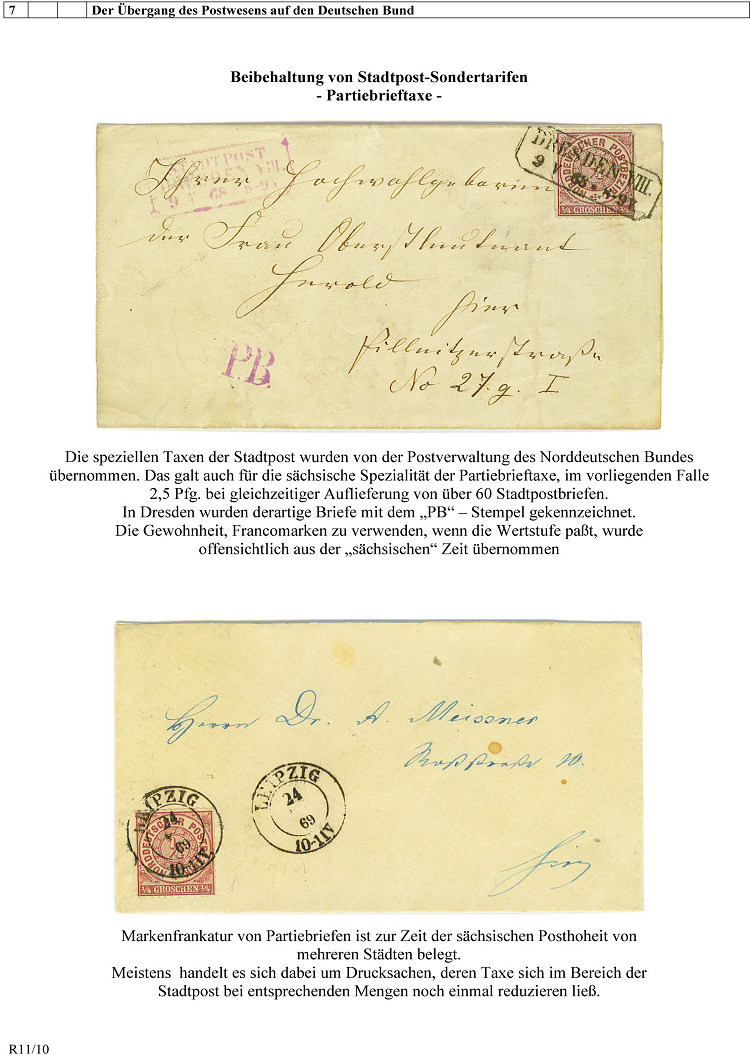 7 Der Übergang des Postwesens auf den Deutschen Bund
Beibehaltung von Stadtpost-Sondertarifen
- Partiebrieftaxe -
STADTPOST
VIII.
9 V 68 8-9
DRESDEN VIII.
9 V 68 8-9
NORDDEUTSCHER POSTBEZIRK
¼ GROSCHEN ¼
Ihrer Hochwohlgeboren
der Frau Oberstlieutnant
Herold
hier
Pillnitzerstraße
No 27. g. I
P.B.
Die speziellen Taxen der Stadtpost wurden von der Postverwaltung des Norddeutschen Bundes
übernommen. Das galt auch für die sächsische Spezialität der Partiebrieftaxe, im vorliegenden Falle
2,5 Pfg. bei gleichzeitiger Auflieferung von über 60 Stadtpostbriefen.
In Dresden wurden derartige Briefe mit dem „PB“ – Stempel gekennzeichnet.
Die Gewohnheit, Francomarken zu verwenden, wenn die Wertstufe paßt, wurde
offensichtlich aus der „sächsischen“ Zeit übernommen
Herrn Dr. A. Meissner
Roßstraße 10.
hier
LEIPZIG
24
69
10-11V
LEIPZIG
24
69
10-11V
NORDDEUTSCHER POSTBEZIRK
¼ GROSCHEN ¼
Markenfrankatur von Partiebriefen ist zur Zeit der sächsischen Posthoheit von
mehreren Städten belegt.
Meistens handelt es sich dabei um Drucksachen, deren Taxe sich im Bereich der
Stadtpost bei entsprechenden Mengen noch einmal reduzieren ließ.
R11/10